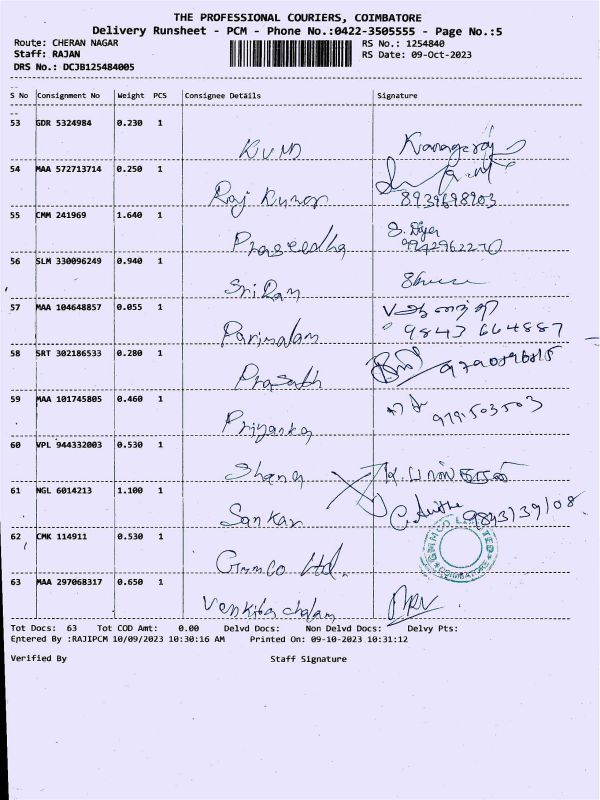 THE PROFESSIONAL COURIERS, COIMBATORE
Delivery Runsheet - PCM - Phone No.:0422-3505555 - Page No.:5
Route: CHERAN NAGAR
RS No.: 1254840
Staff: RAJAN
RS Date: 09-Oct-2023
DRS No.: DCJB125484005
S No Consignment No Weight PCS Consignee Details Signature
53 GDR 5324984 0.230 1
54 MAA 572713714 0.250 1
Raj Kumar 8939698903
55 CMM 241969 1.640 1
Praseedha
56 SLM 330096249 0.940 1
SriRam
57 MAA 104648857 0.055 1
Parimalam 9843 664887
58 SRT 302186533 0.280 1
Prasath
59 MAA 101745805 0.460 1
Priyanka 9791503503
60 VPL 944332003 0.530 1
61 NGL 6014213 1.100 1
Sankar
62 CMK 114911 0.530 1
Gmmco Ltd. GMMCO LIMITED COIMBATORE
63 MAA 297068317 0.650 1
Venkitachalam
Tot Docs: 63 Tot COD Amt: 0.00 Delvd Docs: Non Delvd Docs: Delvy Pts:
Entered By :RAJIPCM 10/09/2023 10:30:16 AM Printed On: 09-10-2023 10:31:12
Verified By Staff Signature